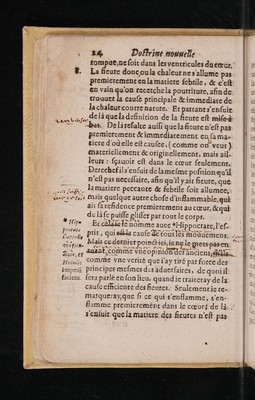 24 Doctrine nouuelle
rompue, ne soit dans les ventricules du cœur.
8. La fieure donc, ou la chaleur ne s'allume pas
premierement en la matiere febrile, & c'est
en vain qu'on recerche la pourriture, afin de
trouuer la cause principale & immediate de
la chaleur contre nature. Et partant s'ensuit
de là que la definition de la fieure est mise à
bas. De là resulte aussi que la fieure n'est pas
premierement & immediatement en sa ma-
tiere d'où elle est causee, (comme on veut)
materiellement & originellement, mais ail-
leurs: sçauoir est dans le cœur seulement.
Derechef il s'ensuit de la mesme position qu'il
n'est pas necessaire, afin qu'il y ait fieure, que
la matiere peccante & febrile soit allumee,
mais quelque autre chose d'inflammable, qui
ait sa residence premierement au cœur, & qui
de là se puisse glisser par tout le corps.
Et celà ie le nomme auec *Hippocrate, l'es-
prit, qui est la cause de tous les mouuemens.
Mais ce dernier poinct icy, ie ne le mets pas en
auant, comme vne opinion des anciens,
comme vne verité que i'ay tiré par force des
principes mesmes des aduersaires, de quoi il
sera parlé en son lieu, quand ie traicteray de la
cause efficiente des fieures. Seulement ie re-
marqueray, que si ce qui s'enflamme, s'en-
flamme premierement dans le cœur: de là
s'ensuit que la matiere des fieures n'est pas
*Hip-
pocrate